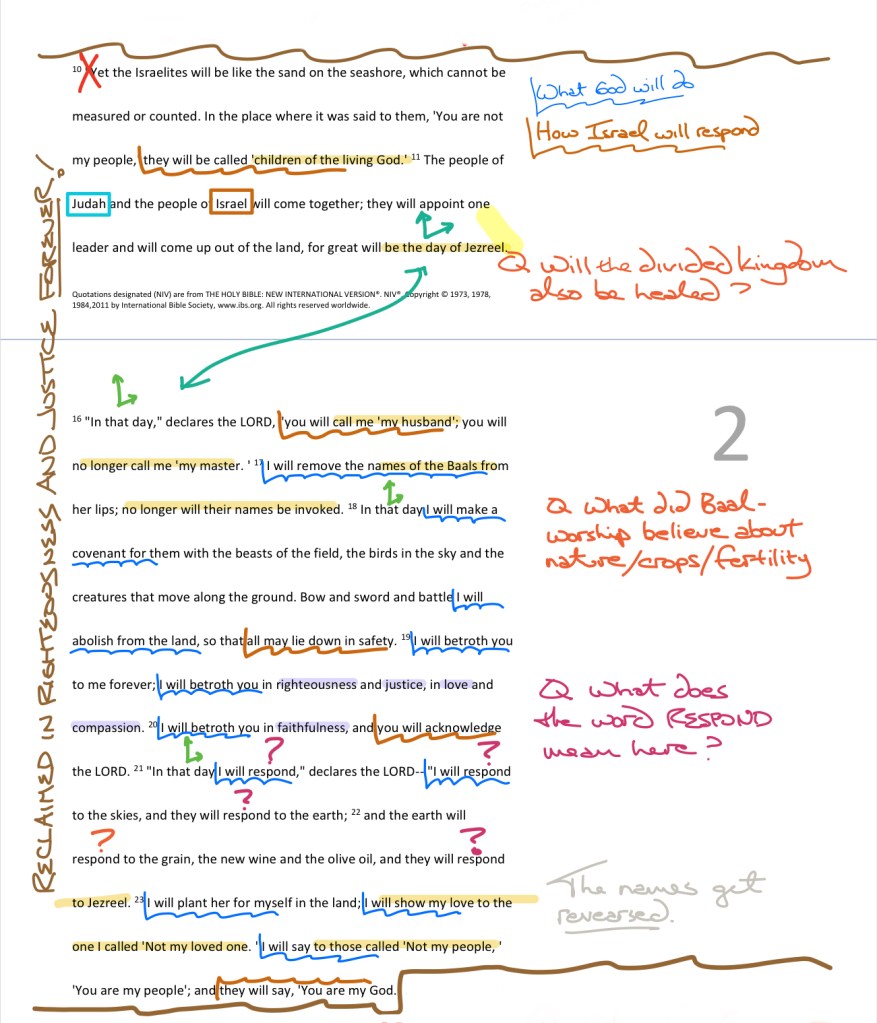 10 Yet the Israelites will be like the sand on the seashore, which cannot be
measured or counted. In the place where it was said to them, 'You are not
my people, they will be called 'children of the living God.' 11 The people of
Judah and the people of Israel will come together; they will appoint one
leader and will come up out of the land, for great will be the day of Jezreel.
Quotations designated (NIV) are from THE HOLY BIBLE: NEW INTERNATIONAL VERSION®. NIV®. Copyright © 1973, 1978,
1984,2011 by International Bible Society, www.ibs.org. All rights reserved worldwide.
What God will do
How Israel will respond
Q Will the divided kingdom
also be healed?
RECLAIMED IN RIGHTEOUSNESS AND JUSTICE FOREVER!
16 "In that day," declares the LORD, 'you will call me 'my husband'; you will
no longer call me 'my master. ' 17 I will remove the names of the Baals from
her lips; no longer will their names be invoked. 18 In that day I will make a
covenant for them with the beasts of the field, the birds in the sky and the
creatures that move along the ground. Bow and sword and battle I will
abolish from the land, so that all may lie down in safety. 19 I will betroth you
to me forever; I will betroth you in righteousness and justice, in love and
compassion. 20 I will betroth you in faithfulness, and you will acknowledge
the LORD. 21 "In that day I will respond," declares the LORD--"I will respond
to the skies, and they will respond to the earth; 22 and the earth will
respond to the grain, the new wine and the olive oil, and they will respond
to Jezreel. 23 I will plant her for myself in the land; I will show my love to the
one I called 'Not my loved one. ' I will say to those called 'Not my people, '
'You are my people'; and they will say, 'You are my God.
?
?
?
?
?
2
Q What did Baal-
worship believe about
nature/crops/fertility
Q What does
the word RESPOND
mean here?
The names get
revearsed.